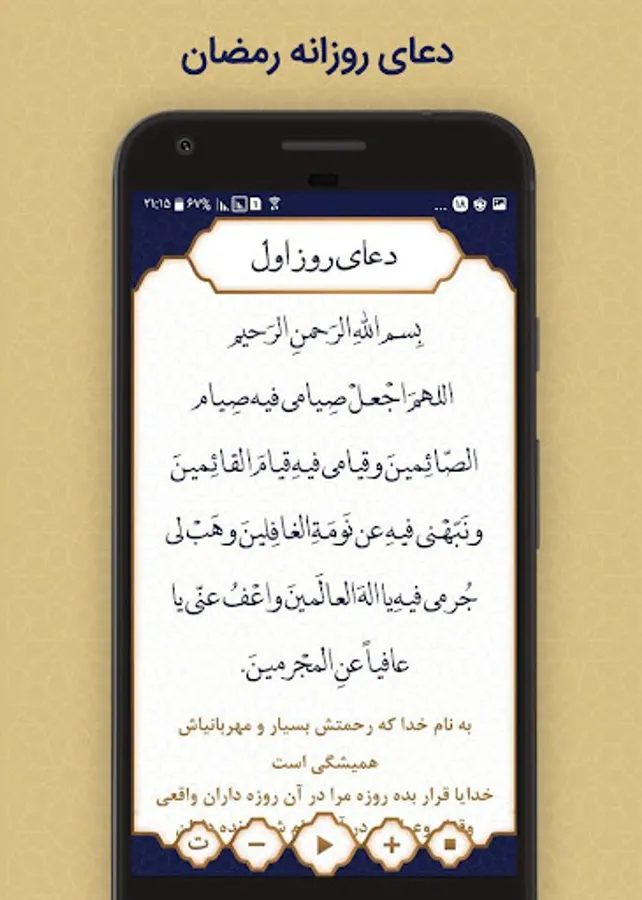 دعای روزانه رمضان
۲۱:۱۵ ۶۷% ... ۱۸
دعای روز اول
بِسمِ اللهِ الرَحمنِ الرَحیمِ
اللهمَ اجْعلْ صِیامی فیه صِیام
الصّائِمینَ وقیامی فیهِ قیامَ القائِمینَ
ونَبّهْنی فیهِ عن نَومَةِ الغافِلینَ وهَبْ لی
جُرمی فیهِ یا الهَ العالَمینَ واعْفُ عنّی یا
عافیاً عنِ المجْرمینَ.
به نام خدا که رحمتش بسیار و مهربانیاش
همیشگی است
خدایا قرار بده روزه مرا در آن روزه داران واقعی
ت